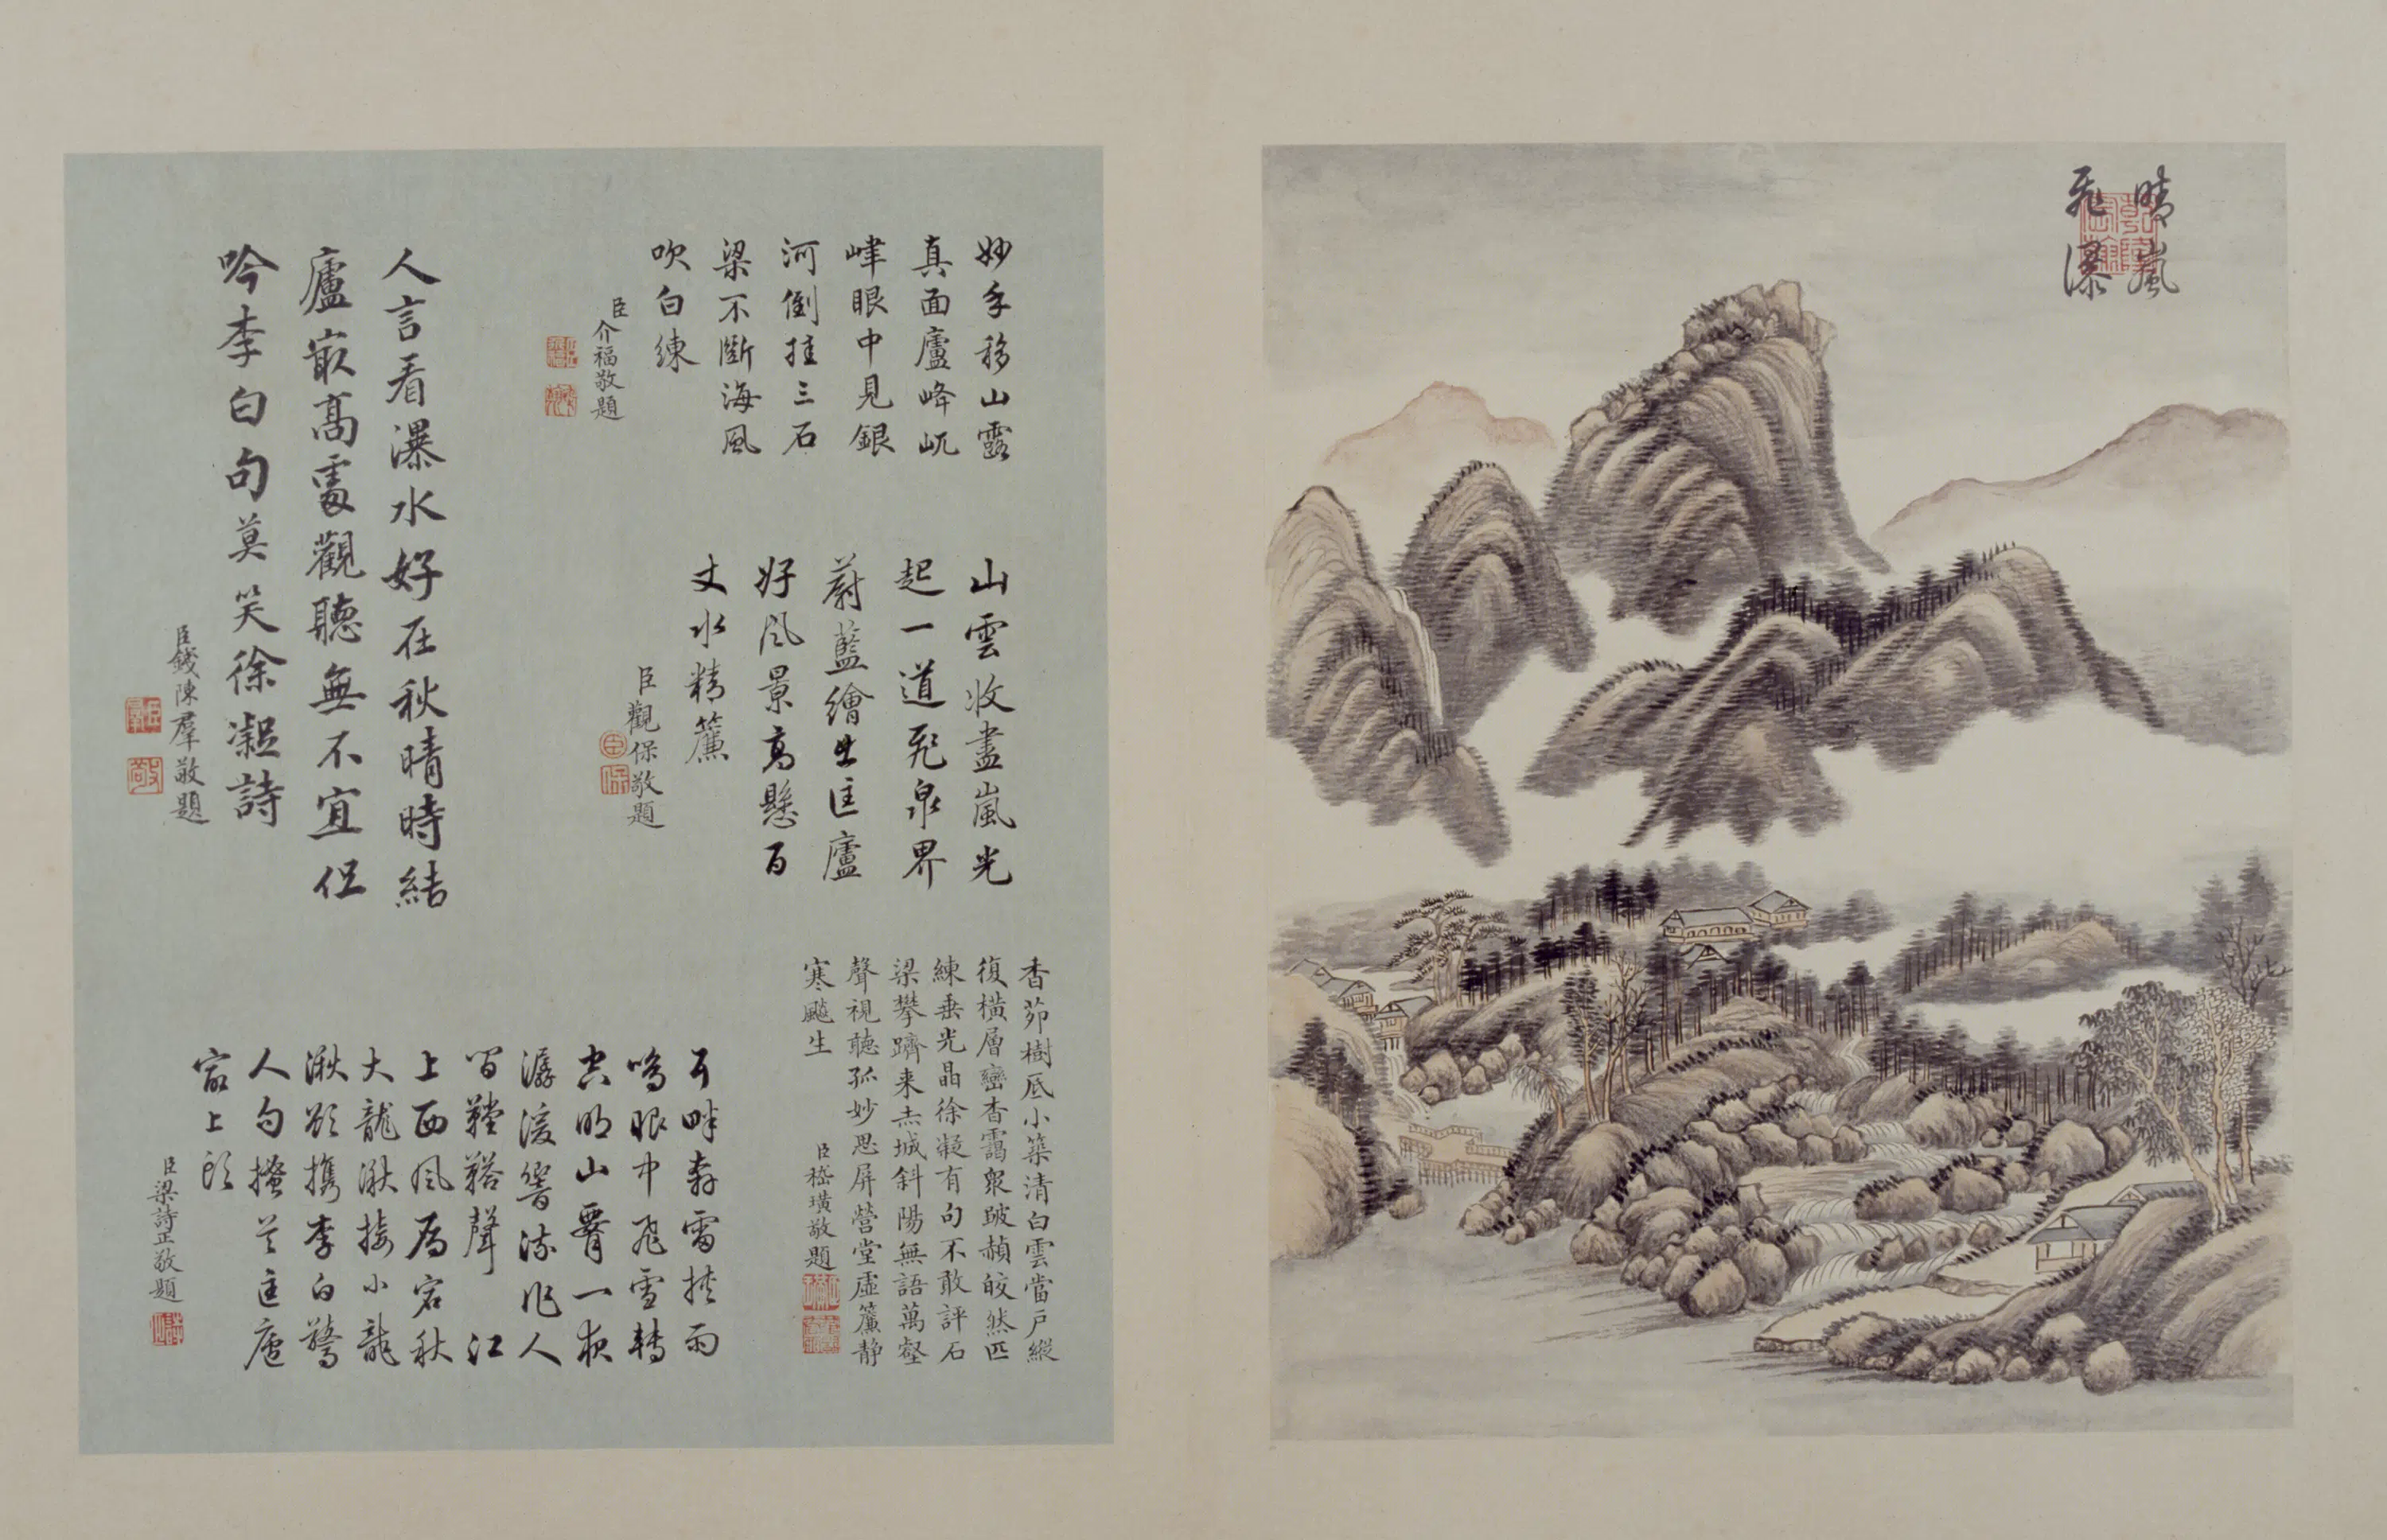 晴嵐
飛瀑
乾隆宸翰
妙手移山露
真面廬峰屼
峍眼中見銀
河倒挂三石
梁不斷海風
吹白練
臣介福敬題
山雲收盡嵐光
起一道飛泉界
蔚藍繪出匡廬
好風景高懸百
丈水精簾
臣觀保敬題
香茆樹底小築清白雲當戶縱
復橫層巒杳靄眾皴赬皎然匹
練垂光晶徐凝有句不敢評石
梁攀躋来赤城斜陽無語萬壑
聲視聽孤妙思屏營堂虛簾静
寒飈生
臣嵇璜敬題
人言看瀑水好在秋晴時結
廬嵌高處觀聽無不宜但
吟李白句莫笑徐凝詩
臣錢陳羣敬題
耳畔奔雷挾雨
鳴眼中飛雪轉
空明山腰一夜
潺湲響流作人
間鞺鞳聲 江
上西風宕秋
大龍湫接小龍
湫欲携李白驚
人句匡廬
最上頭
臣梁詩正敬題